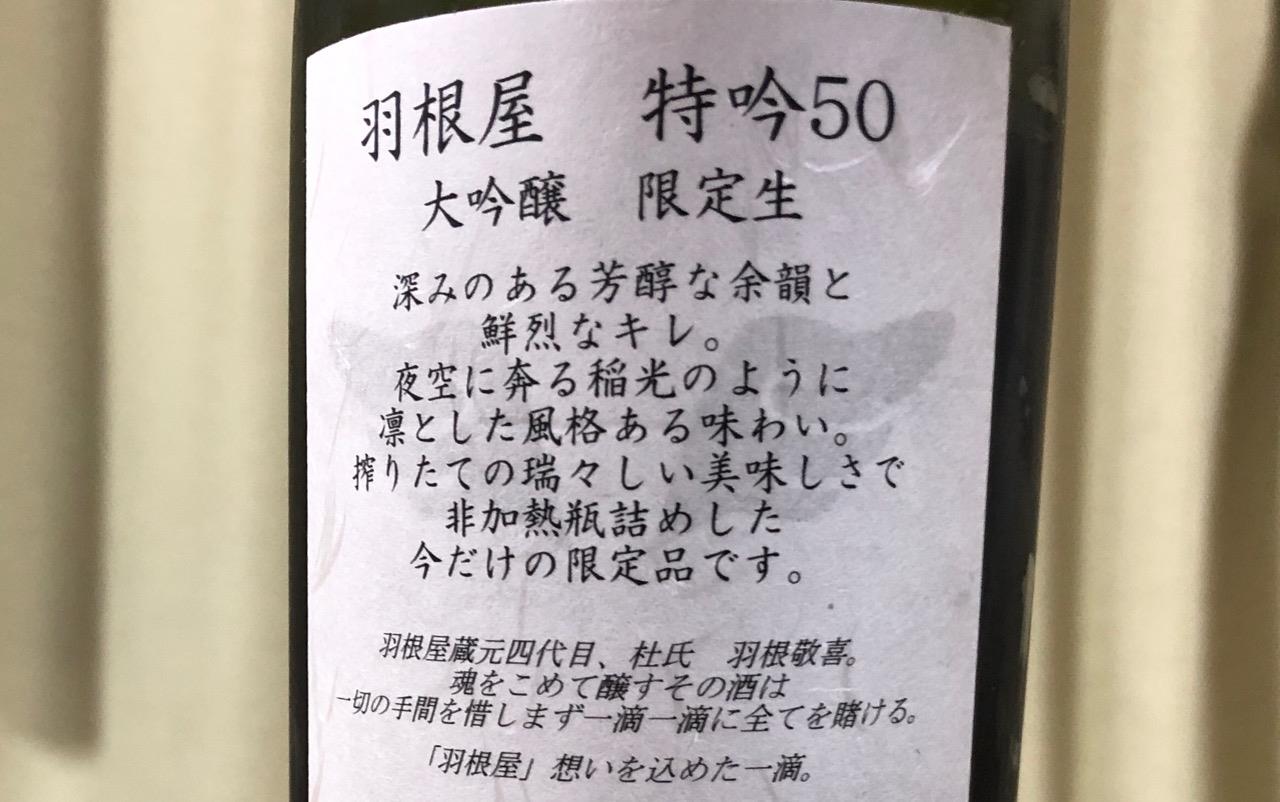 羽根屋　特吟50
大吟醸　限定生
深みのある芳醇な余韻と
鮮烈なキレ。
夜空に奔る稲光のように
凛とした風格ある味わい。
搾りたての瑞々しい美味しさで
非加熱瓶詰めした
今だけの限定品です。
羽根屋蔵元四代目、杜氏　羽根敬喜。
魂をこめて醸すその酒は
一切の手間を惜しまず一滴一滴に全てを賭ける。
「羽根屋」想いを込めた一滴。